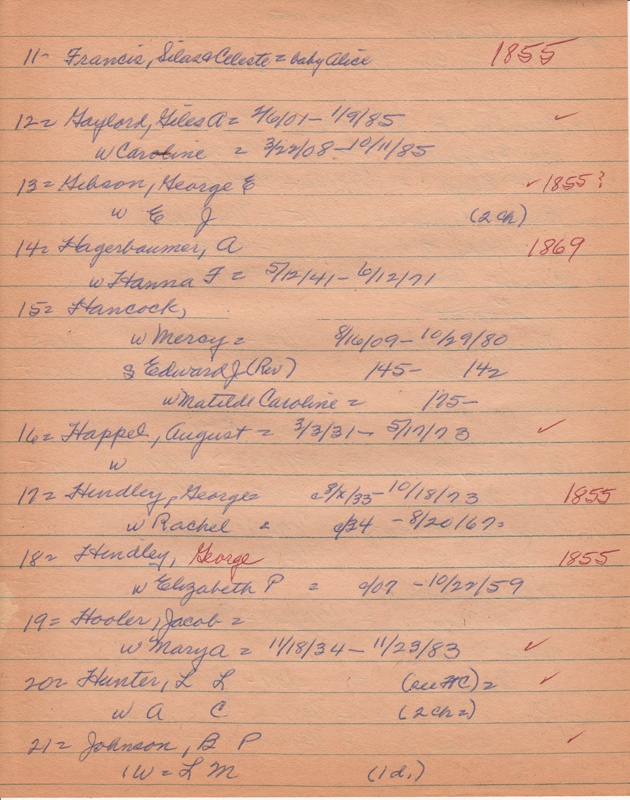 11- Francis, Silas & Celeste = baby Alice 1855
12= Gaylord, Giles A = 2/6/01 - 1/9/85 ✓
w Caroline = 3/22/08 - 10/11/85
13= Gibson, George E ✓ 1855?
w E J (2 ch)
14= Hagerbaumer, A 1869
w Hanna F = 5/12/41 - 6/12/71
15= Hancock,
w Mercy = 8/16/09 - 10/29/80
s Edward J (Rev) 145- 142
w Matilde Caroline = 175-
16= Happel, August = 3/3/31 - 5/17/73 ✓
w
17= Hindley, George = c 8/x/33 - 10/18/73 1855
w Rachel = c/34 - 8/20/67=
18= Hindley, George 1855
w Elizabeth P = c/07 - 10/22/59
19= Hooler, Jacob =
w Mary A = 11/18/34 - 11/23/83 ✓
20= Hunter, L L (see HC) = ✓
w A C (2 ch =)
21= Johnson, B P ✓
1 w = L M (1 d,)